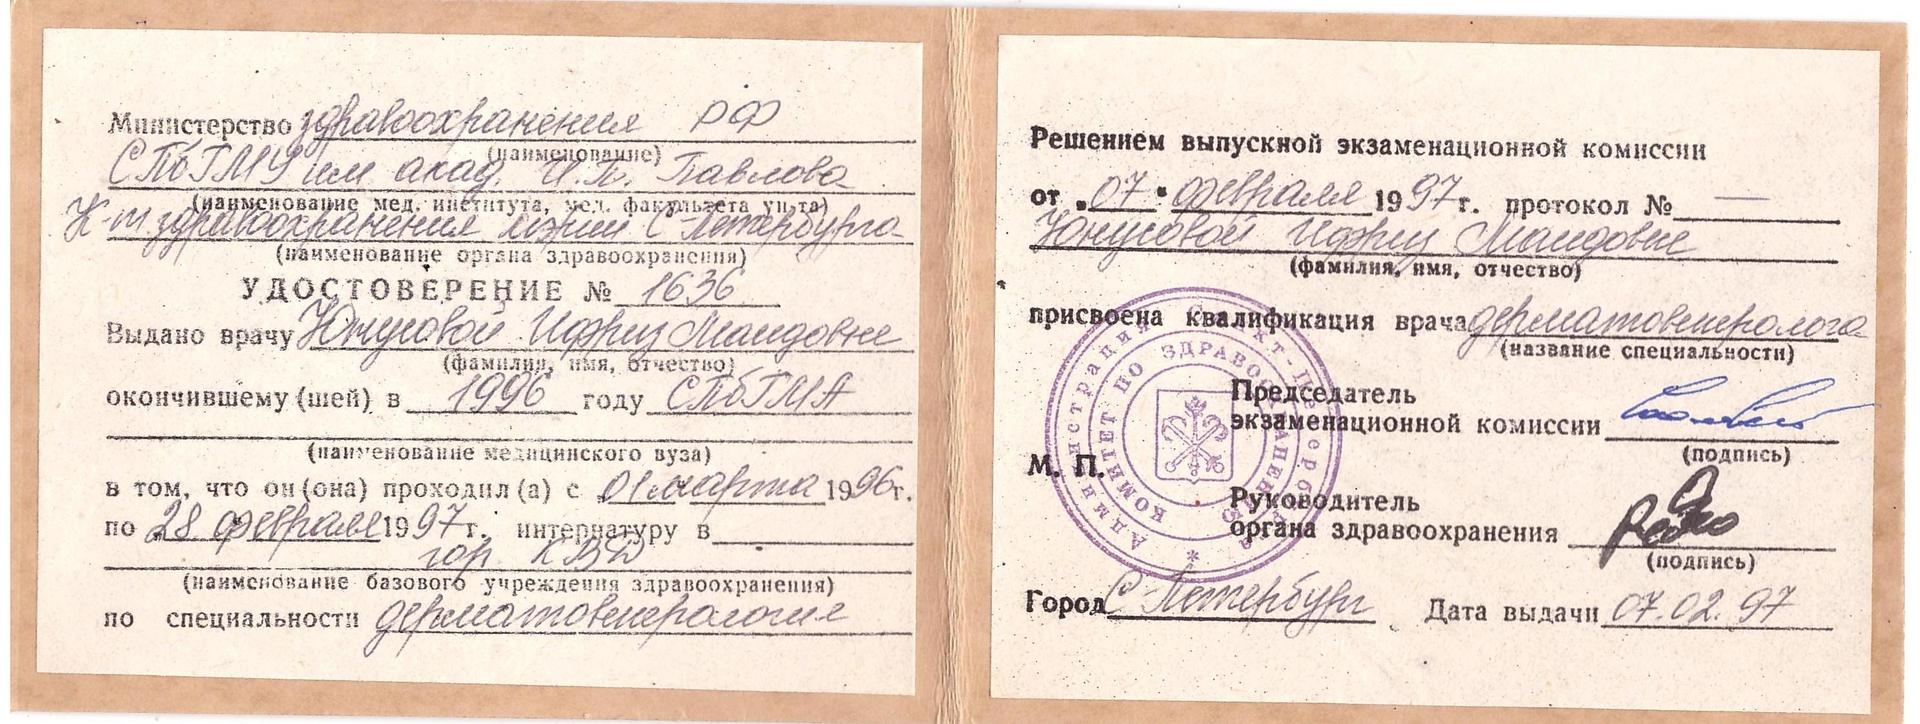 Министерство здравоохранения РФ
(наименование)
СПбГМУ им акад. И.П. Павлова
(наименование мед. института, мед. факультета ун-та)
К-т здравоохранения мэрии С-Петербурга
(наименование органа здравоохранения)
УДОСТОВЕРЕНИЕ № 1636
Выдано врачу Юнусовой
(фамилия, имя, отчество)
окончившему (шей) в 1996 году СПбГМА
(наименование медицинского вуза)
в том, что он (она) проходил (а) с 01 марта 1996 г.
по 28 февраля 1997 г. интернатуру в
гор КВД
(наименование базового учреждения здравоохранения)
по специальности дерматовенерология
Решением выпускной экзаменационной комиссии
от „07" февраля 1997 г. протокол № —
Юнусовой
(фамилия, имя, отчество)
присвоена квалификация врача дерматовенеролога
(название специальности)
Председатель
экзаменационной комиссии
(подпись)
М. П.
Руководитель
органа здравоохранения
(подпись)
Город С Петербург Дата выдачи 07.02.97
Администрация Санкт-Петербурга
КОМИТЕТ ПО ЗДРАВООХРАНЕНИЮ